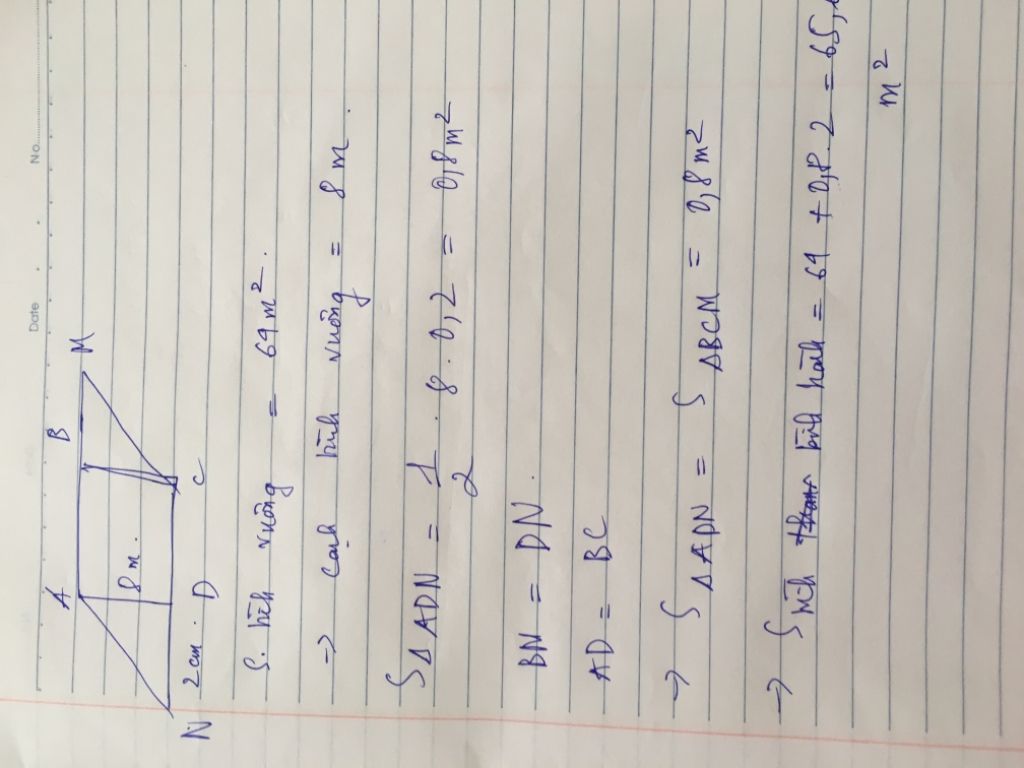 No.
Date
A B M
8 m.
N 2 cm. D C
S. hình vuông = 64 m².
→ cạnh hình vuông = 8 m.
S Δ ADN = 1/2 . 8 . 0,2 = 0,8 m²
BN = DN.
AD = BC
→ S Δ ADN = S Δ BCM = 0,8 m²
→ S hình bình hành = 64 + 0,8 . 2 = 65,
m²